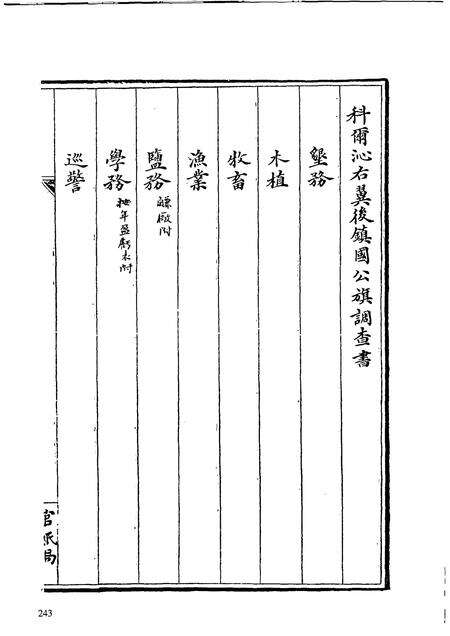 科爾沁右翼後鎮國公旗調查書
墾務
木植
牧畜
漁業
鹽務 附
學務 年盈虧 附
巡警
官紙局
243